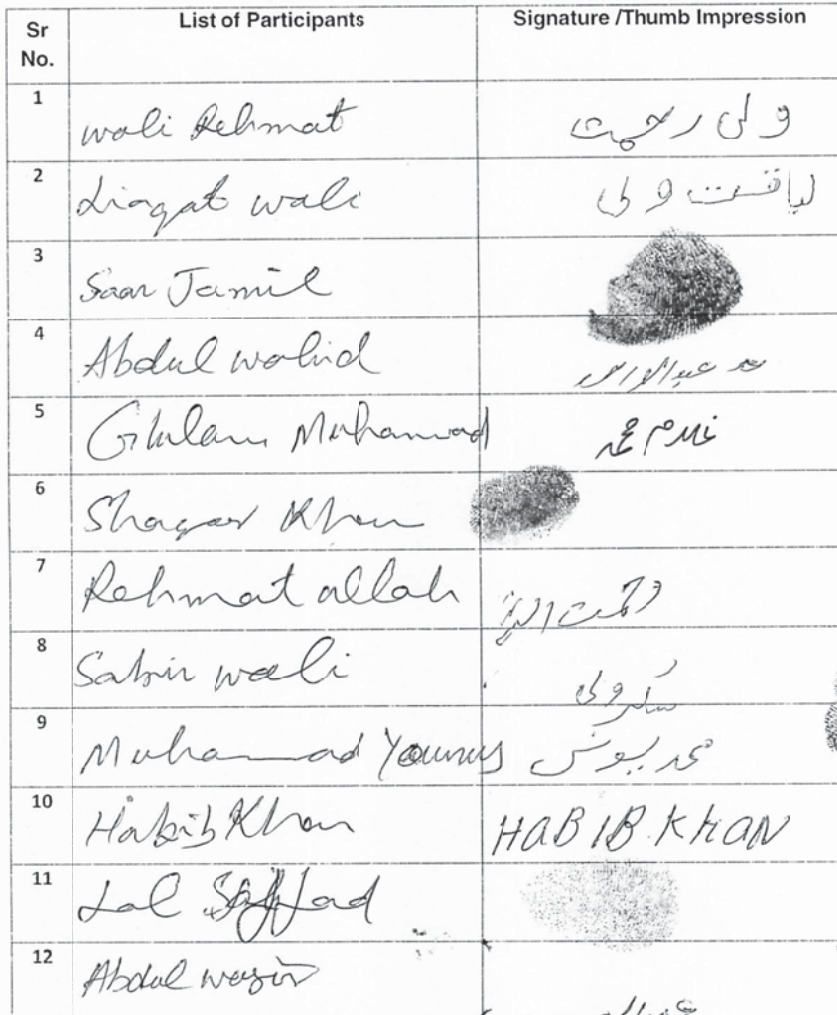 Sr No. List of Participants Signature /Thumb Impression
1 wali Rehmat ولی رحمت
2 Liaqat wali لیاقت ولی
3 Saar Jamil
4 Abdul wahid
5 Ghulam Muhammad غلام محمد
6 Khan
7 Rehmat allah رحمت اللہ
8 Sabir wali ولی
9 Muhammad Younus محمد یونس
10 Habib Khan HABIB KHAN
11 Lal
12 Abdul wazir